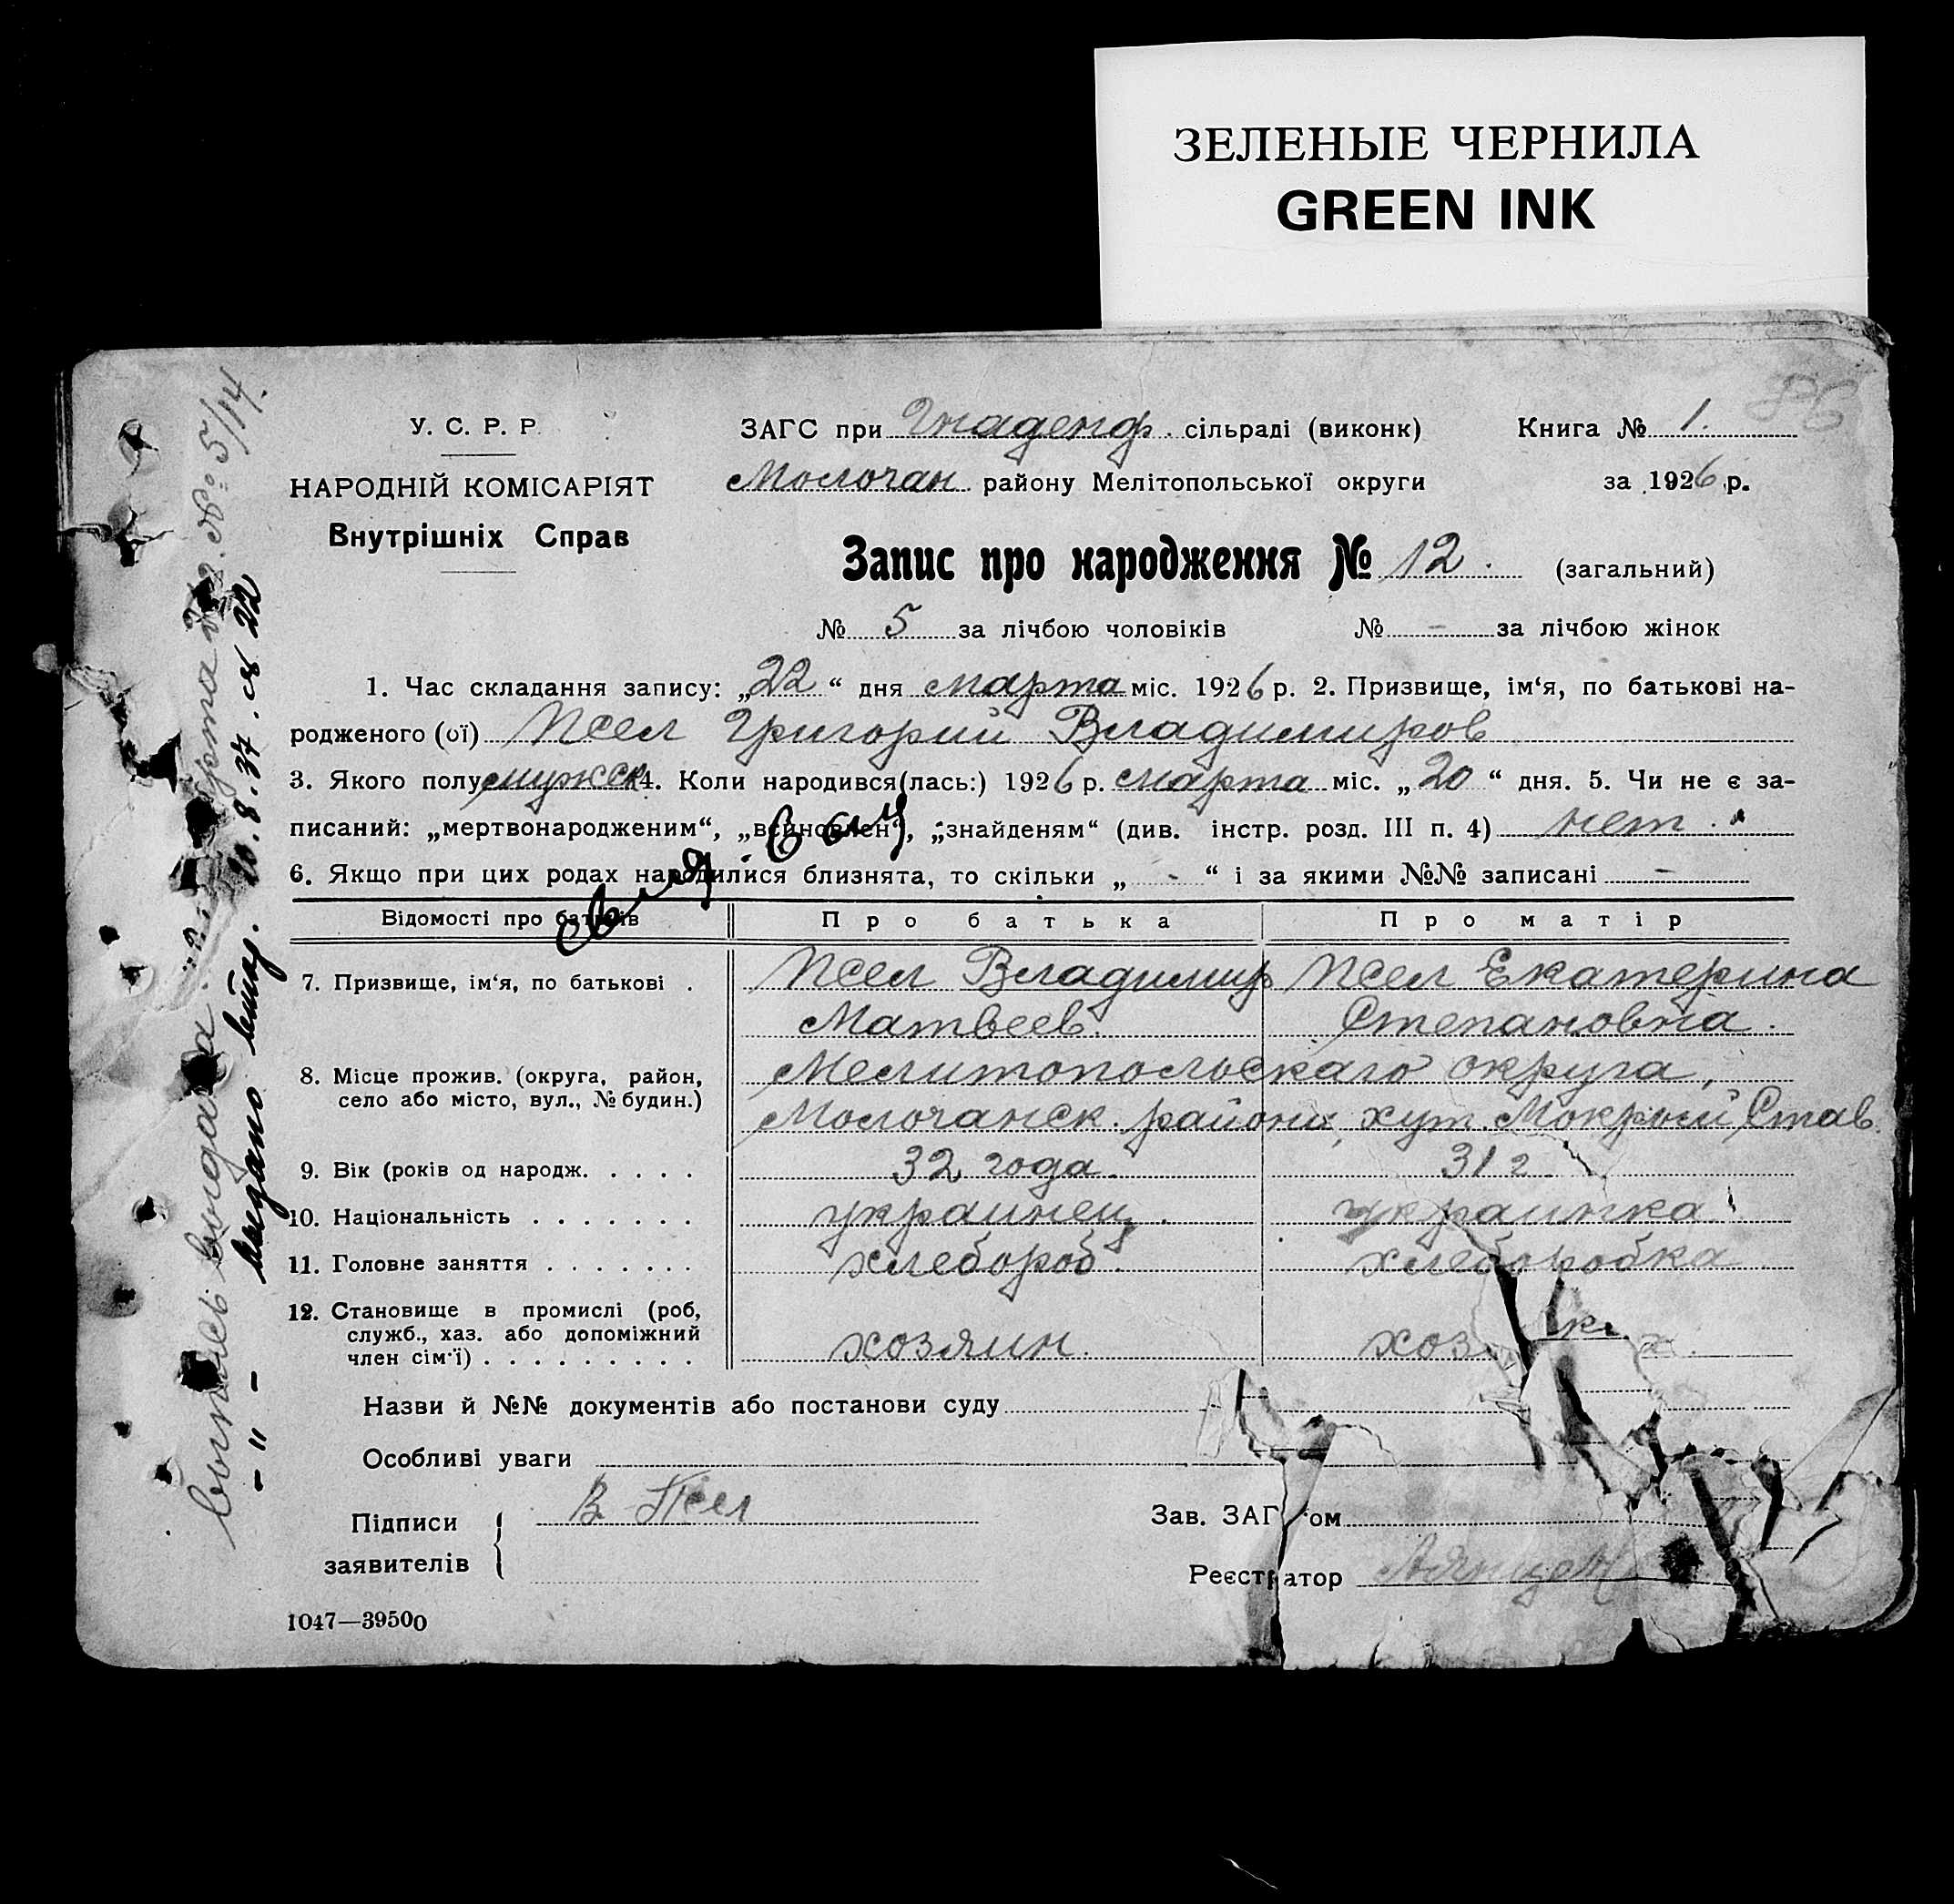 ЗЕЛЕНЫЕ ЧЕРНИЛА
GREEN INK
86
У. С. Р. Р.
НАРОДНІЙ КОМІСАРІЯТ
Внутрішніх Справ
ЗАГС при Гнаденф. сільраді (виконк)
Молочан району Мелітопольської округи
Книга № 1.
за 1926 р.
Запис про народження № 12. (загальний)
№ 5 за лічбою чоловіків № - за лічбою жінок
1. Час складання запису: „22“ дня марта міс. 1926 р. 2. Призвище, ім‘я, по батькові на-
родженого (ої) Псел Григорий Владимиров
3. Якого полу мужск 4. Коли народився(лась:) 1926 р. марта міс. „20“ дня. 5. Чи не є за-
писаний: „мертвонародженим“, „всиновлен“, „знайденям“ (див. інстр. розд. III п. 4) нет.
6. Якщо при цих родах народилися близнята, то скільки „ - “ і за якими №№ записані -
Відомості про батьків
Про батька
Про матір
7. Призвище, ім‘я, по батькові .
Псел Владимир
Матвеев.
Псел Екатерина
Степановна.
8. Місце прожив. (округа, район,
село або місто, вул., № будин.)
Мелитопольскаго округа,
Молочанск. района, хут. Мокрый Став.
9. Вік (років од народж. . . . .
32 года.
31 г
10. Національність . . . . . . .
украинец.
украинка
11. Головне заняття . . . . . . .
хлебороб.
хлеборобка
12. Становище в промислі (роб,
служб., хаз. або допоміжний
член сім‘ї) . . . . . . . . .
хозяин.
Назви й №№ документів або постанови суду
Особливі уваги
Підписи
заявителів
В. Псел
Зав. ЗАГ ом
Реєстратор
1047—39500
выпись выдана марта № 5/14.
выдано 10.8.37. св 22
- " -